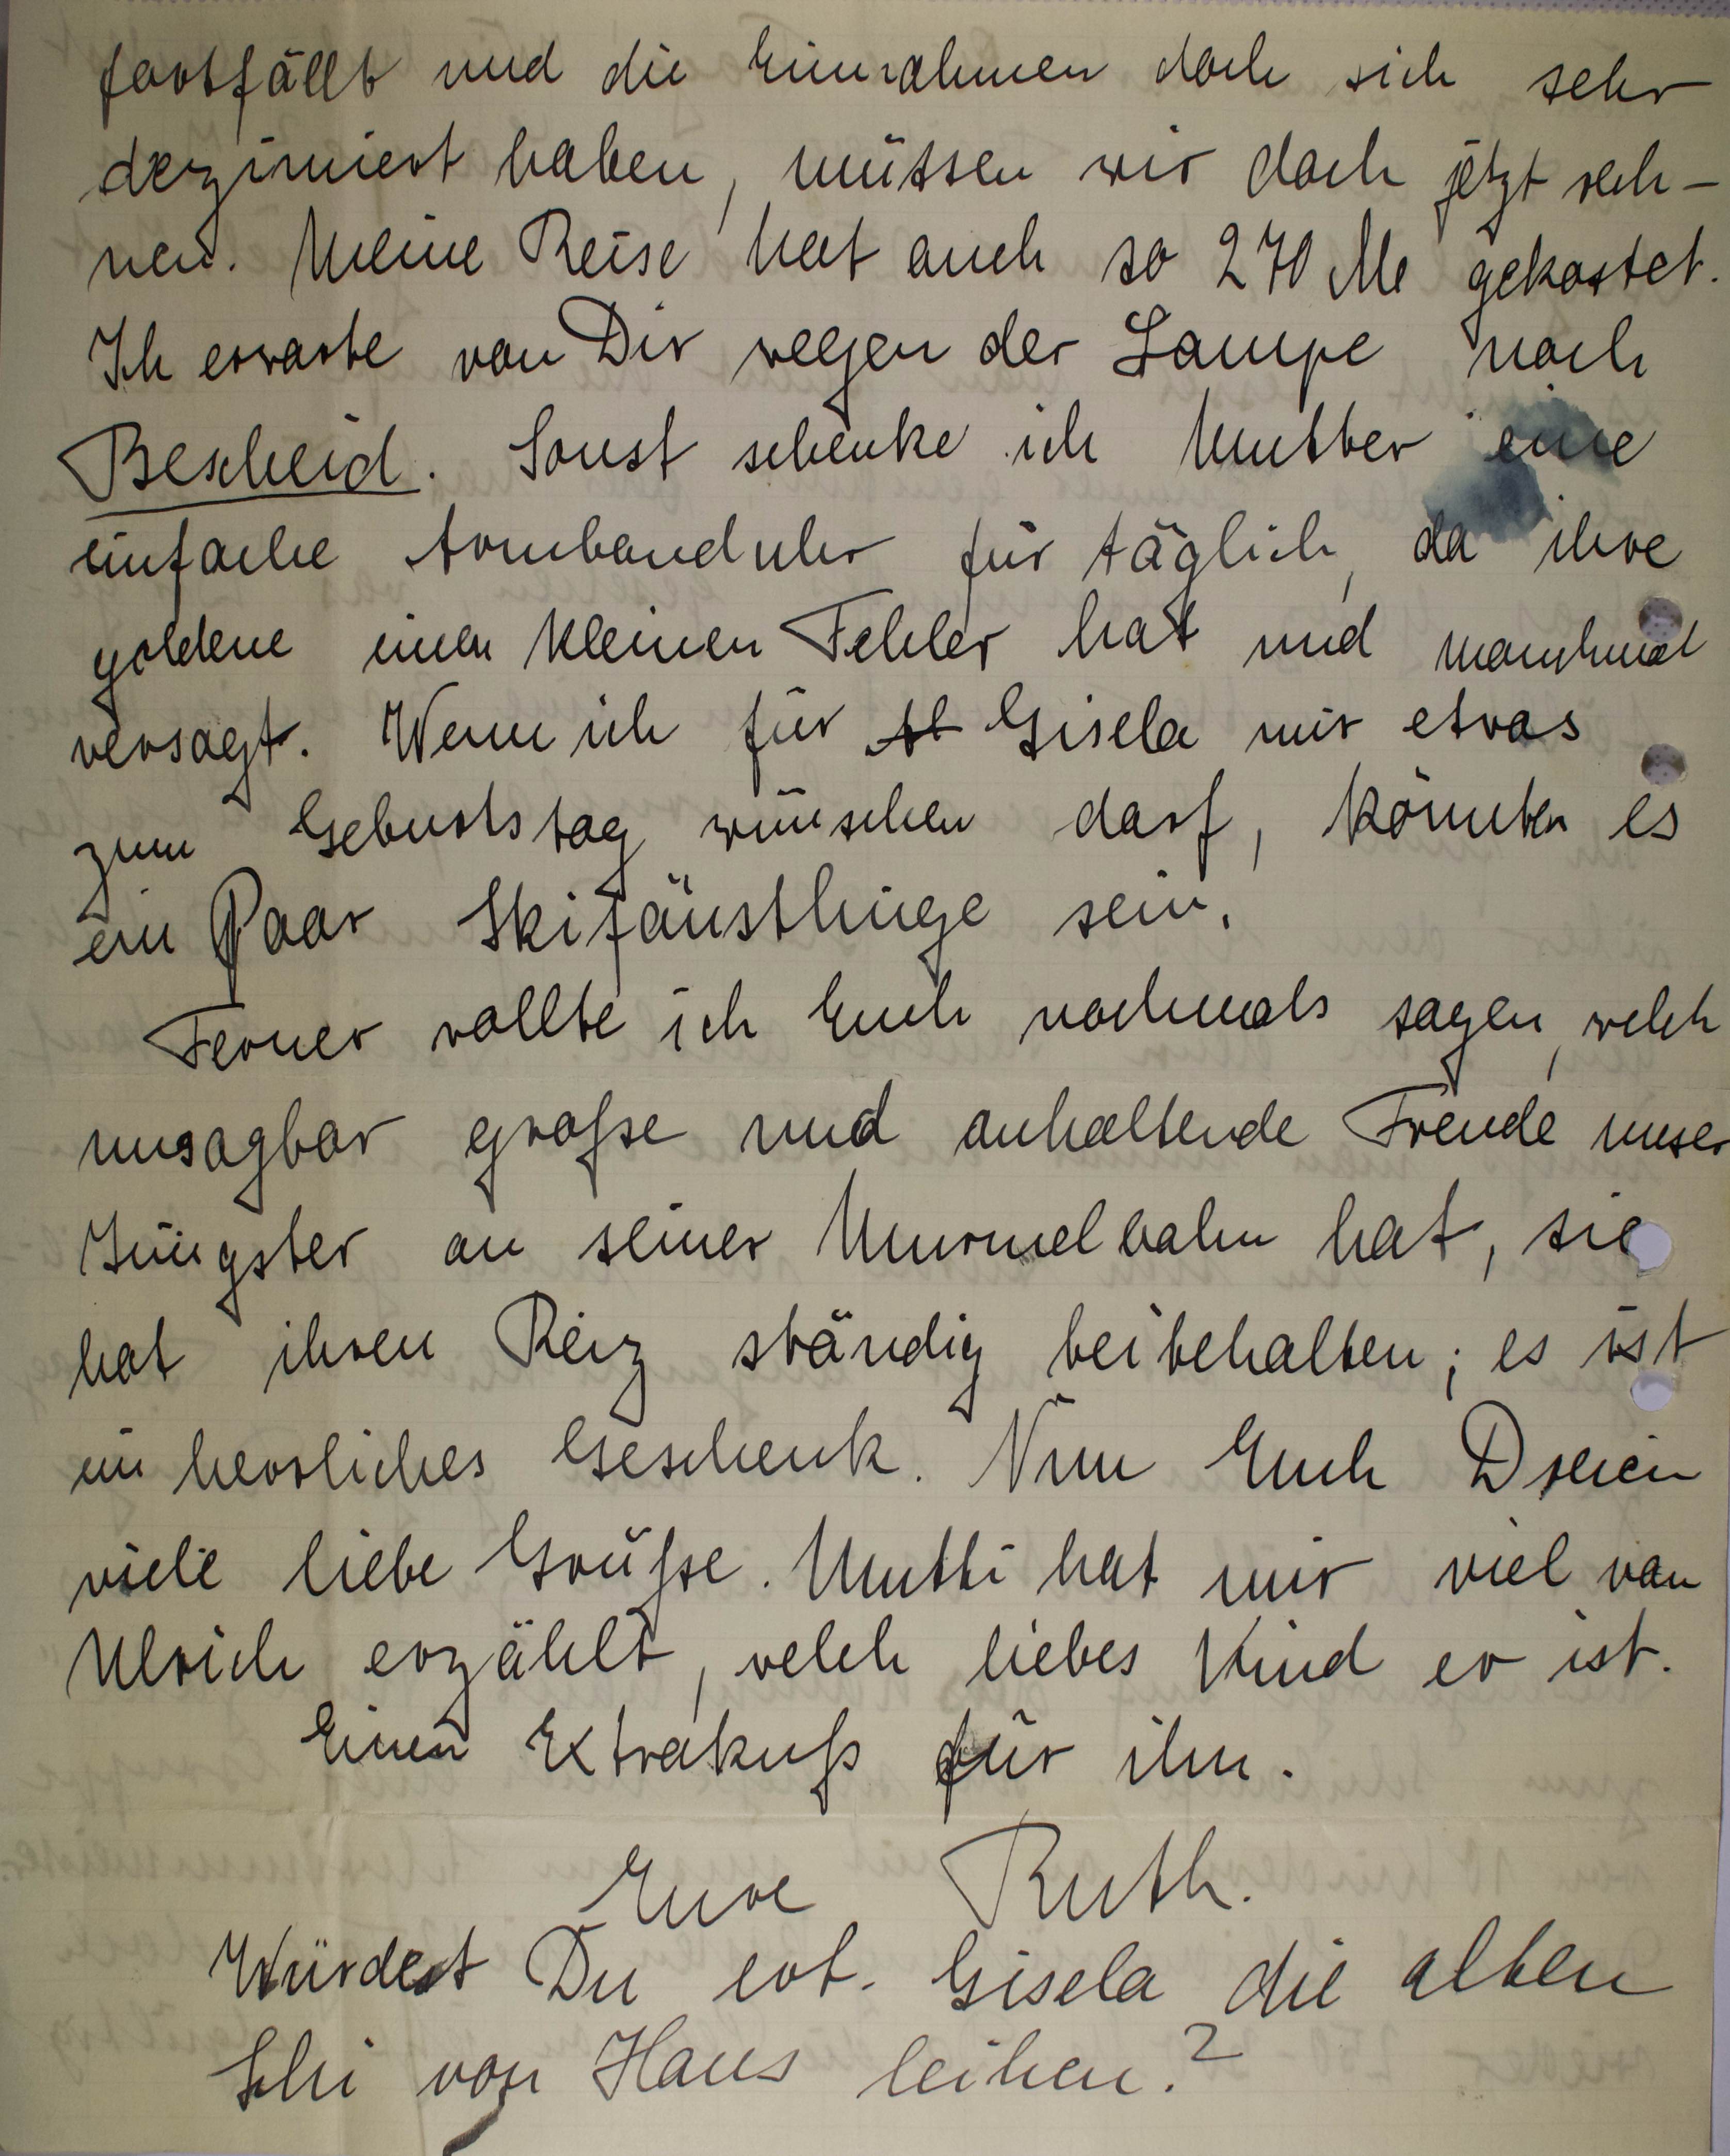 fortfällt und die Einnahmen doch sich sehr
dezimiert haben, müssen wir doch jetzt rech-
nen. Meine Reise hat auch so 270 M gekostet.
Ich erwarte von Dir wegen der Lampe noch
Bescheid. Sonst schenke ich Mutter eine
einfache Armbanduhr für täglich, da ihre
goldene einen kleinen Fehler hat und manchmal
versagt. Wenn ich für Gisela mir etwas
zum Geburtstag wünschen darf, könnten es
ein Paar Skifäustlinge sein.
Ferner wollte ich Euch nochmals sagen, welch
unsagbar große und anhaltende Freude unser
Jüngster an seiner Murmelbahn hat, sie
hat ihren Reiz ständig beibehalten; es ist
ein herrliches Geschenk. Nun Euch Dreien
viele liebe Grüße. Mutti hat mir viel von
Ulrich erzählt, welch liebes Kind er ist.
Einen Extrakuß für ihn.
Eure Ruth.
Würdest Du evt. Gisela die alten
Schi von Hans leihen?